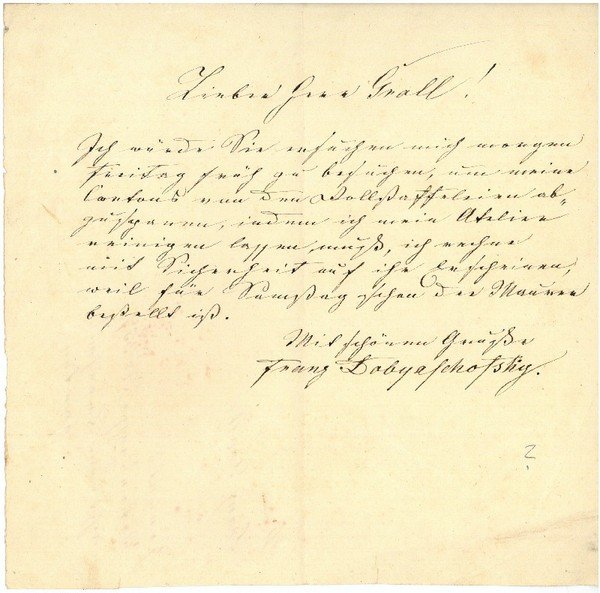 Lieber Herr Grall!
Ich würde Sie ersuchen mich morgen
Freitag früh zu besuchen, um meine
Cartons von den Vollstaffeleien ab-
zuspannen, indem ich mein Atelier
reinigen lassen muß, ich rechne
mit Sicherheit auf ihr Erscheinen,
weil für Samstag schon der Maurer
bestellt ist.
Mit schönem Gruße
Franz Dobyaschofsky.
2